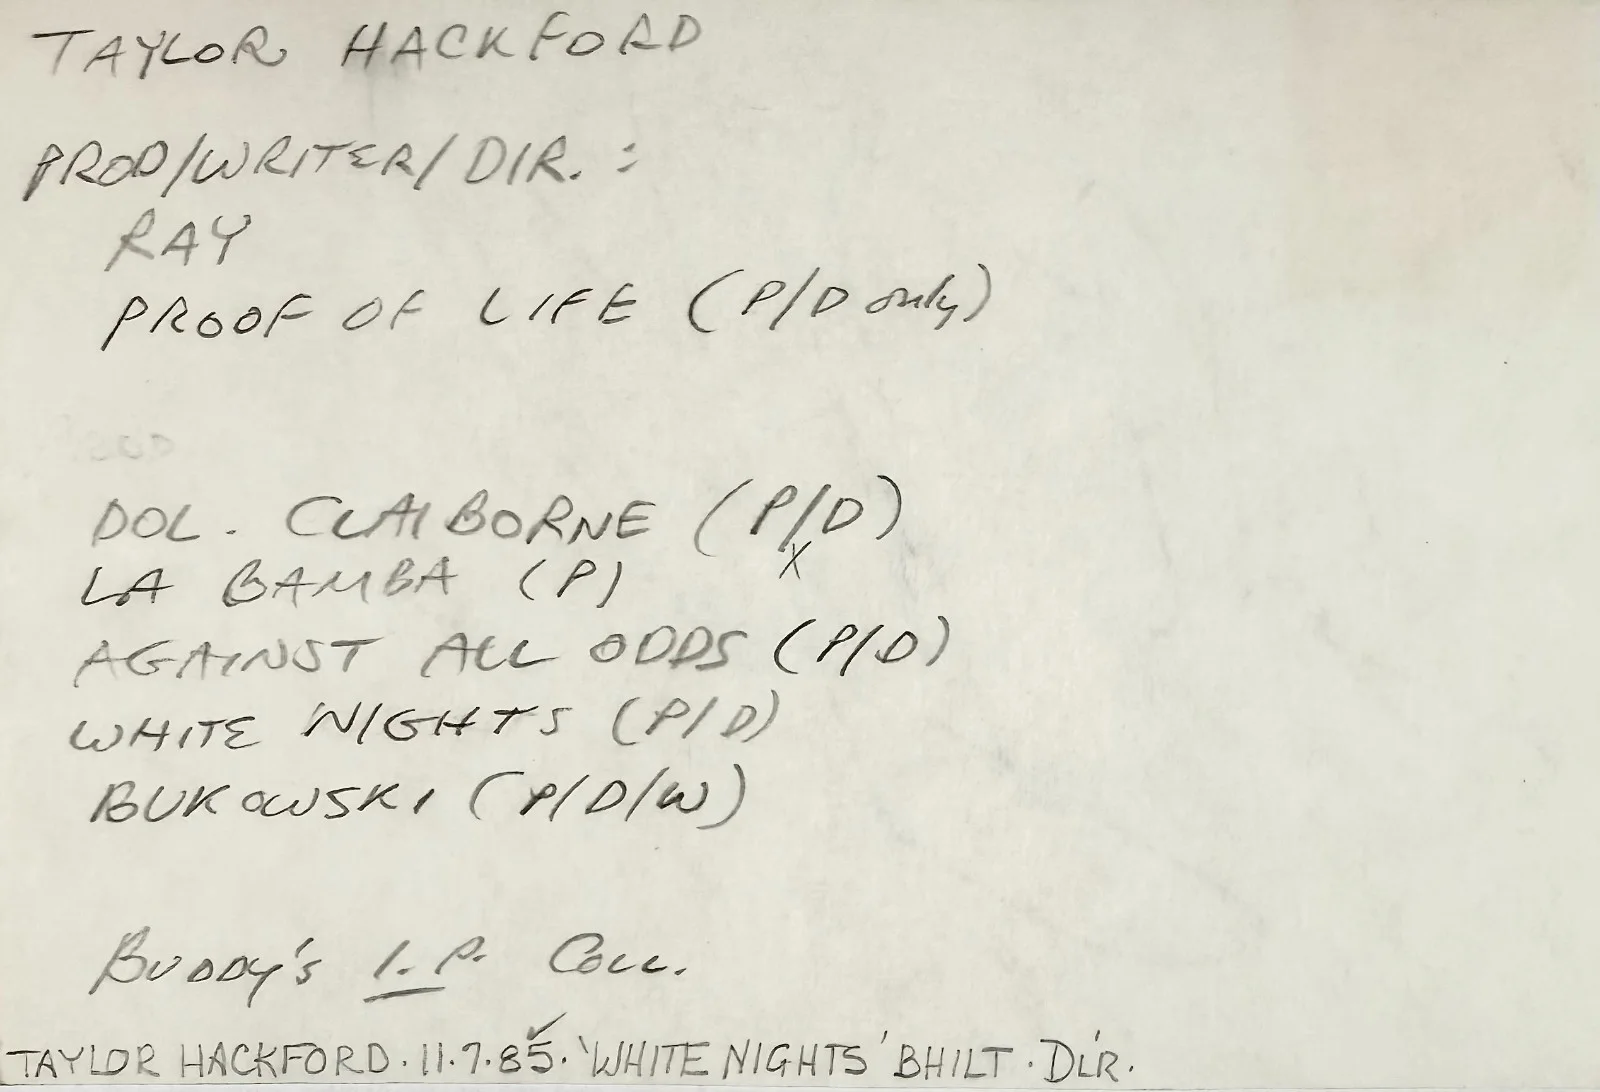 TAYLOR HACKFORD
PROD/WRITER/DIR. :
RAY
PROOF OF LIFE (P/D only)
DOL. CLAIBORNE (P/D)
X
LA BAMBA (P)
AGAINST ALL ODDS (P/D)
WHITE NIGHTS (P/D)
BUKOWSKI (P/D/W)
BUDDY'S I.P. COLL.
TAYLOR HACKFORD. 11.7.85. 'WHITE NIGHTS' BHILT. DIR.